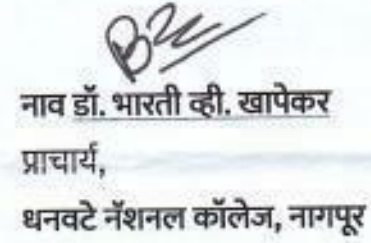 नाव डॉ. भारती व्ही. खापेकर
प्राचार्य,
धनवटे नॅशनल कॉलेज, नागपूर